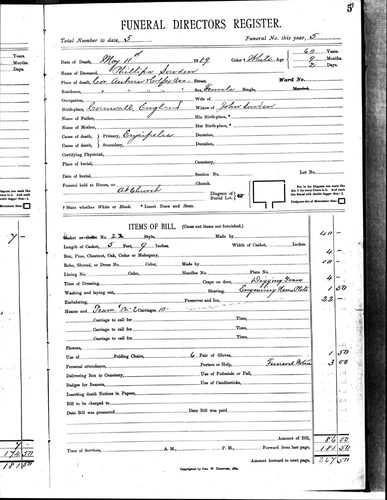 5
FUNERAL DIRECTORS REGISTER.
Total Number to date, 5 Funeral No. this year, 5
Date of Death, May 11th 1889 Color † White Age 60 Years.
9 Months.
2 Days.
Name of Deceased, Phillipa Sowden
Place of Death, Cor. Auburn Ave. Street, Ward No.
Residence, Sex, Female Single, Married,
Occupation, Wife of
Birthplace, Cornwall, England Widow of John Sowden
Name of Father, His Birth-place,
Name of Mother, Her Birth-place,
Cause of Death, Primary, Erysipelas Duration,
Cause of Death, Secondary, Duration,
Certifying Physician,
Place of burial, Cemetery,
Date of burial, Section No. Lot No.
Funeral held at House, At Church Church.
Diagram of Burial Lot.
† State whether White or Black. * Insert Town or State.
ITEMS OF BILL. (Cross out items not furnished.)
Casket or Coffin No. 22 Style, Made by 40 –
Length of Casket, 5 Feet, 9 Inches. Width of Casket, Inches.
Box, Pine, Chestnut, Oak, Cedar or Mahogany, Made by 4 –
Robe, Shroud, or Dress No. Color, Made by 10 –
Lining No. Color, Handles No. Plate No.
Time of Dressing, Crape on door, Digging Grave 4 –
Washing and laying out, Shaving, Engraving Name Plate 1 50
Embalming, Preserving and Ice, 22 –
Hearse and Team Carriages 10
Carriage to call for Time,
Carriage to call for Time,
Carriage to call for Time,
Carriage to call for Time,
Flowers,
Use of Folding Chairs, 6 Pair of Gloves, 1 50
Personal attendance, Porters or Help, Funeral Notice 3 00
Delivering Box to Cemetery, Use of Pedestals or Pall,
Badges for Bearers, Use of Candlesticks,
Inserting Death Notices in Papers,
Bill to be charged to
Date Bill was presented Date Bill was paid
Amount of Bill, 86 00
Time of Services, A. M., P. M., Forward from last page, 181 50
Amount forward to next page, 267 50